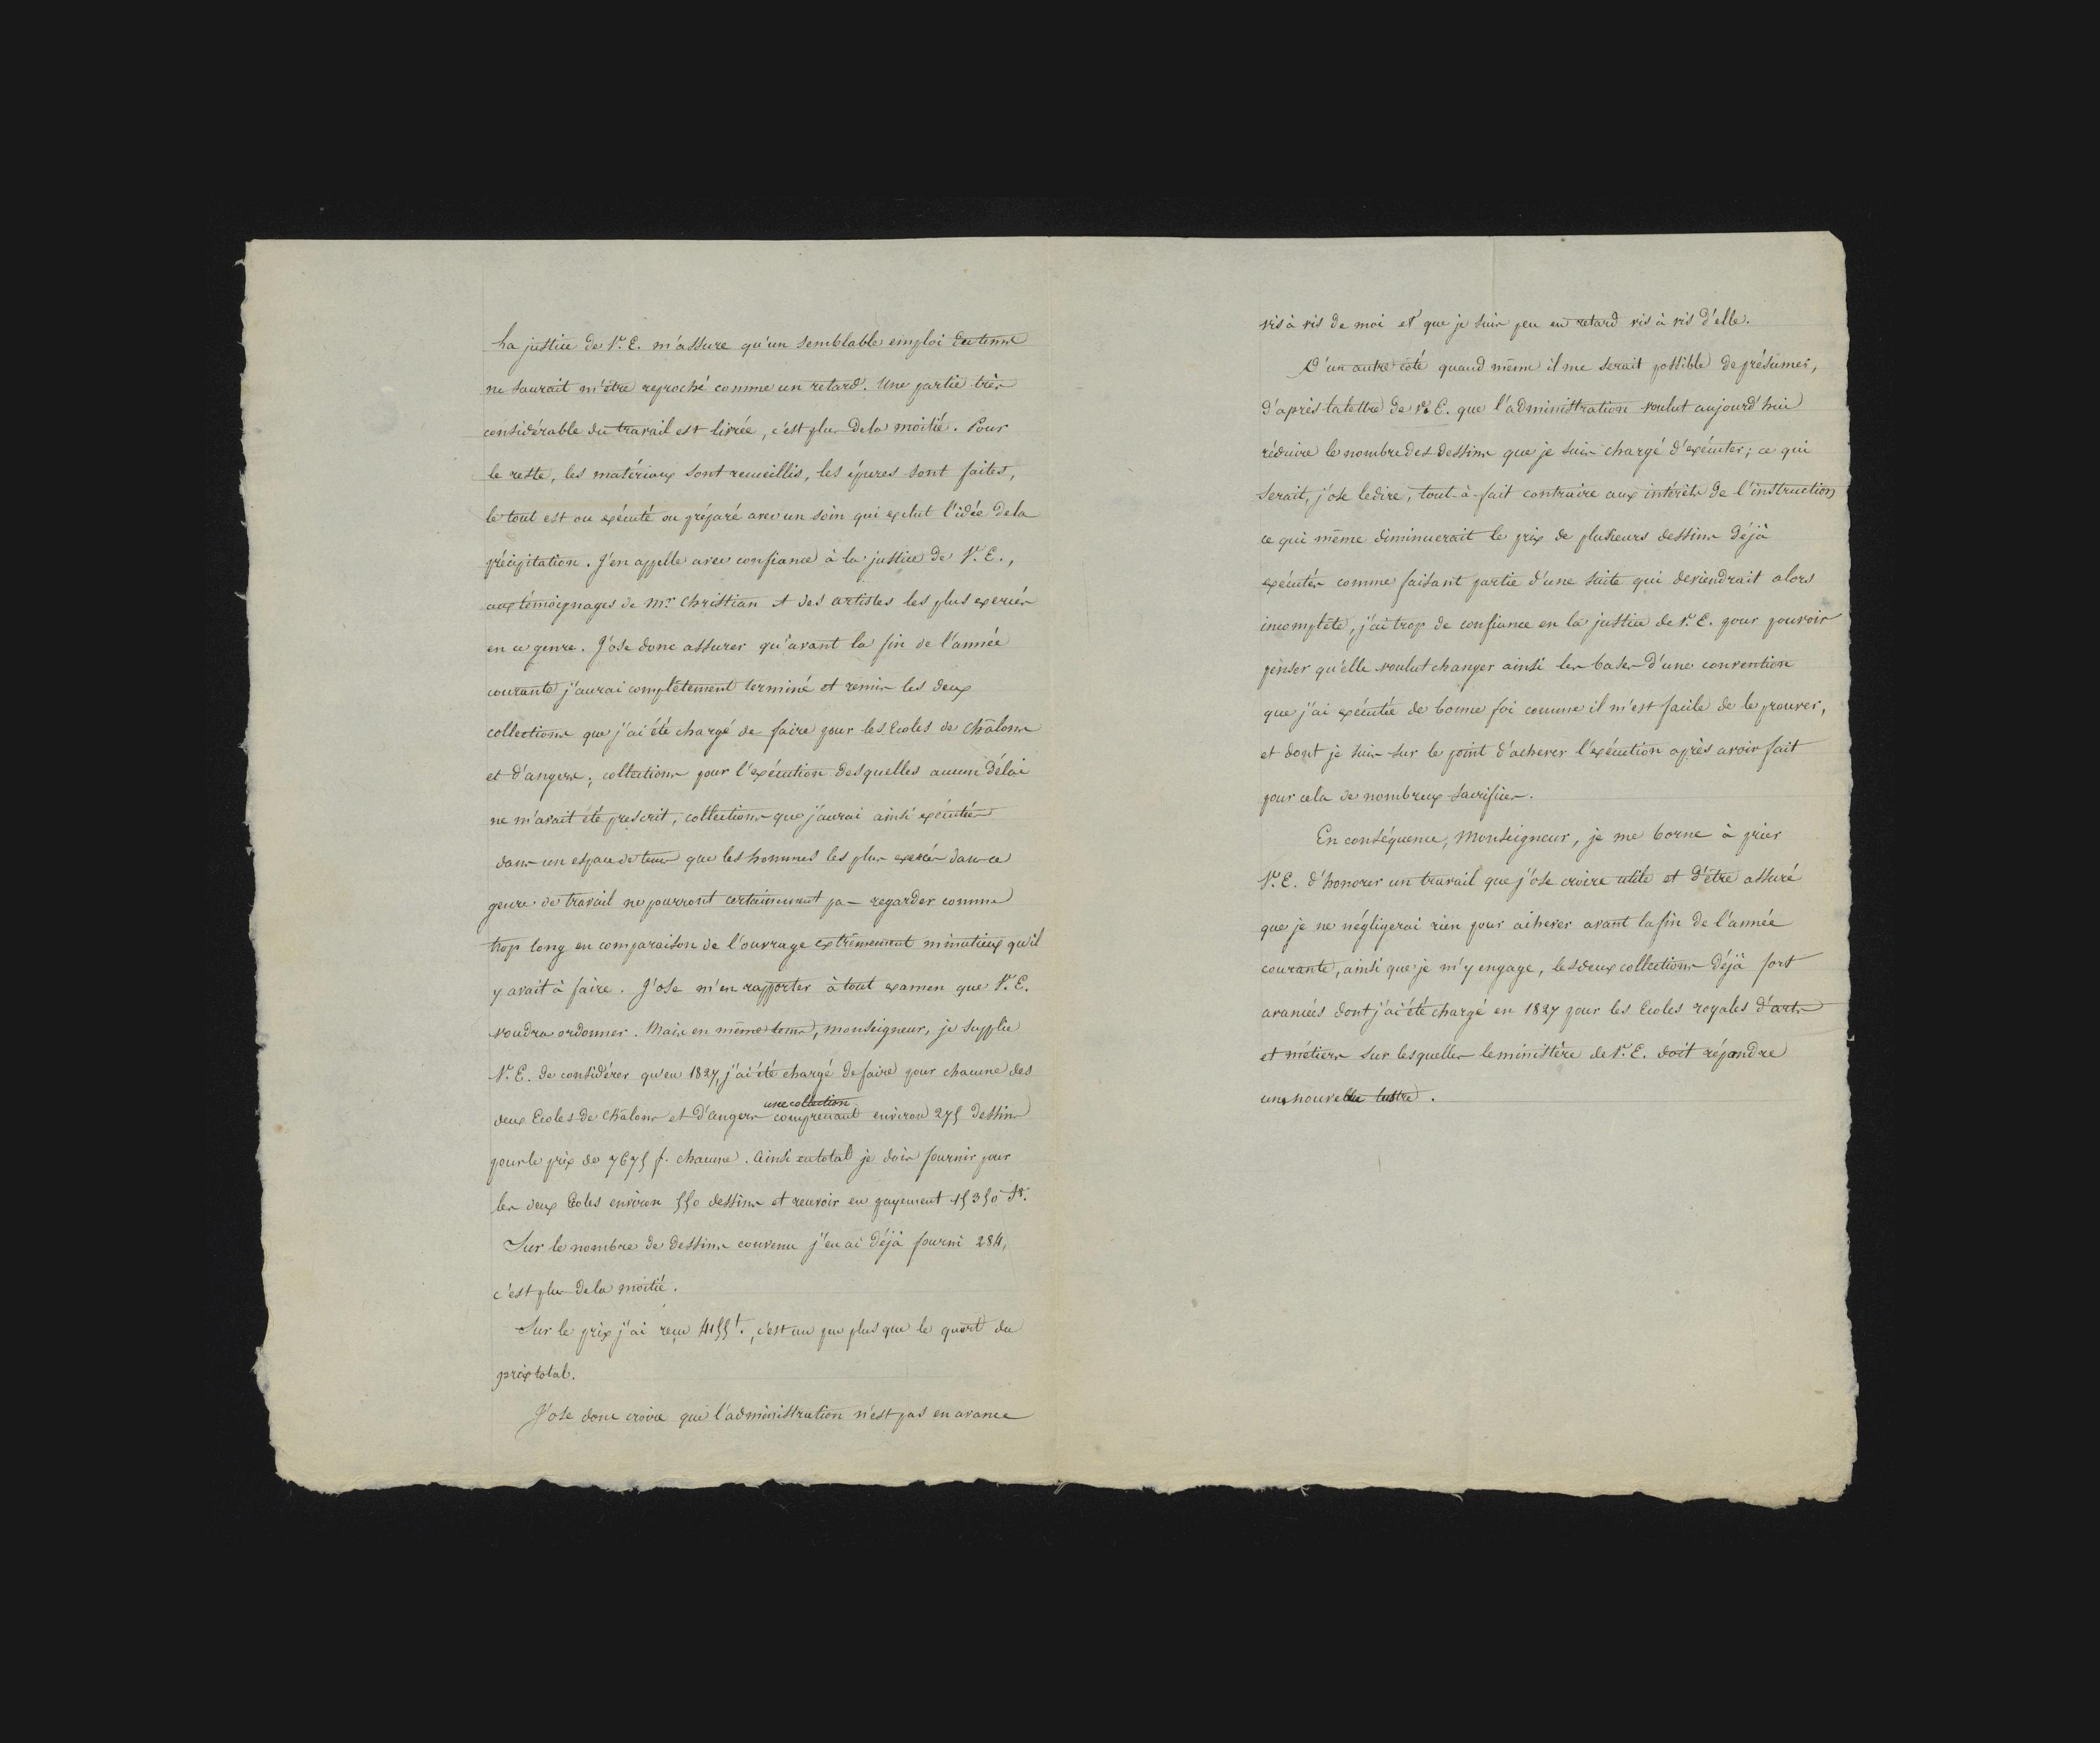 La justice de V.e E. m'assure qu'un semblable emploi du tems
ne saurait m'être reproché comme un retard. Une partie très
considérable du travail est livrée, c'est plus de la moitié. Pour
le reste, les matériaux sont recueillis, les épures sont faites,
le tout est ou exécuté ou préparé avec un soin qui exclut l'idée de la
précipitation. J'en appelle avec confiance à la justice de V.e E.,
aux témoignages de Mr. Christian et des artistes les plus exercés
en ce genre. J'ose donc assurer qu'avant la fin de l'année
courante j'aurai complètement terminé et remis les deux
collections que j'ai été chargé de faire pour les Ecoles de Châlons
et d'angers; collections pour l'exécution desquelles aucun délai
ne m'avait été prescrit, collections que j'aurai ainsi exécutées
dans un espace de tems que les hommes les plus exercés dans ce
genre de travail ne pourront certainement pas regarder comme
trop long en comparaison de l'ouvrage extrêmement minutieux qu'il
y avait à faire. J'ose m'en rapporter à tout examen que V.e E.
voudra ordonner. Mais en même tems, monseigneur, je supplie
V.e E. de considérer qu'en 1827, j'ai été chargé de faire pour chacune des
deux Ecoles de Châlons et d'angers une collection comprenant environ 275 dessins
pour le prix de 7675 f. chacune. Ainsi en total je dois fournir pour
les deux Ecoles environ 550 dessins et recevoir en payement 15350 fr.
Sur le nombre de dessins convenu j'en ai déjà fourni 284,
c'est plus de la moitié.
Sur le prix j'ai reçu 4155 f., c'est un peu plus que le quart du
prix total.
J'ose donc croire que l'administration n'est pas en avance
vis à vis de moi et que je suis peu en retard vis à vis d'elle.
D'un autre côté quand même il me serait possible de présumer,
d'après la lettre de V.e E. que l'administration voulut aujourd'hui
réduire le nombre des dessins que je suis chargé d'exécuter; ce qui
serait, j'ose le dire, tout-à-fait contraire aux intérêts de l'instruction
ce qui même diminuerait le prix de plusieurs dessins déjà
exécutés comme faisant partie d'une suite qui deviendrait alors
incomplète, j'ai trop de confiance en la justice de V.e E. pour pouvoir
penser qu'elle voulut changer ainsi les bases d'une convention
que j'ai exécutée de bonne foi comme il m'est facile de le prouver,
et dont je suis sur le point d'achever l'exécution après avoir fait
pour cela de nombreux sacrifices.
En conséquence, Monseigneur, je me borne à prier
V.e E. d'honorer un travail que j'ose croire utile et d'être assuré
que je ne négligerai rien pour achever avant la fin de l'année
courante, ainsi que je m'y engage, les deux collections déjà fort
avancées dont j'ai été chargé en 1827 pour les Ecoles royales d'arts
et métiers sur lesquelles le ministère de V.e E. doit répandre
un nouveau lustre.